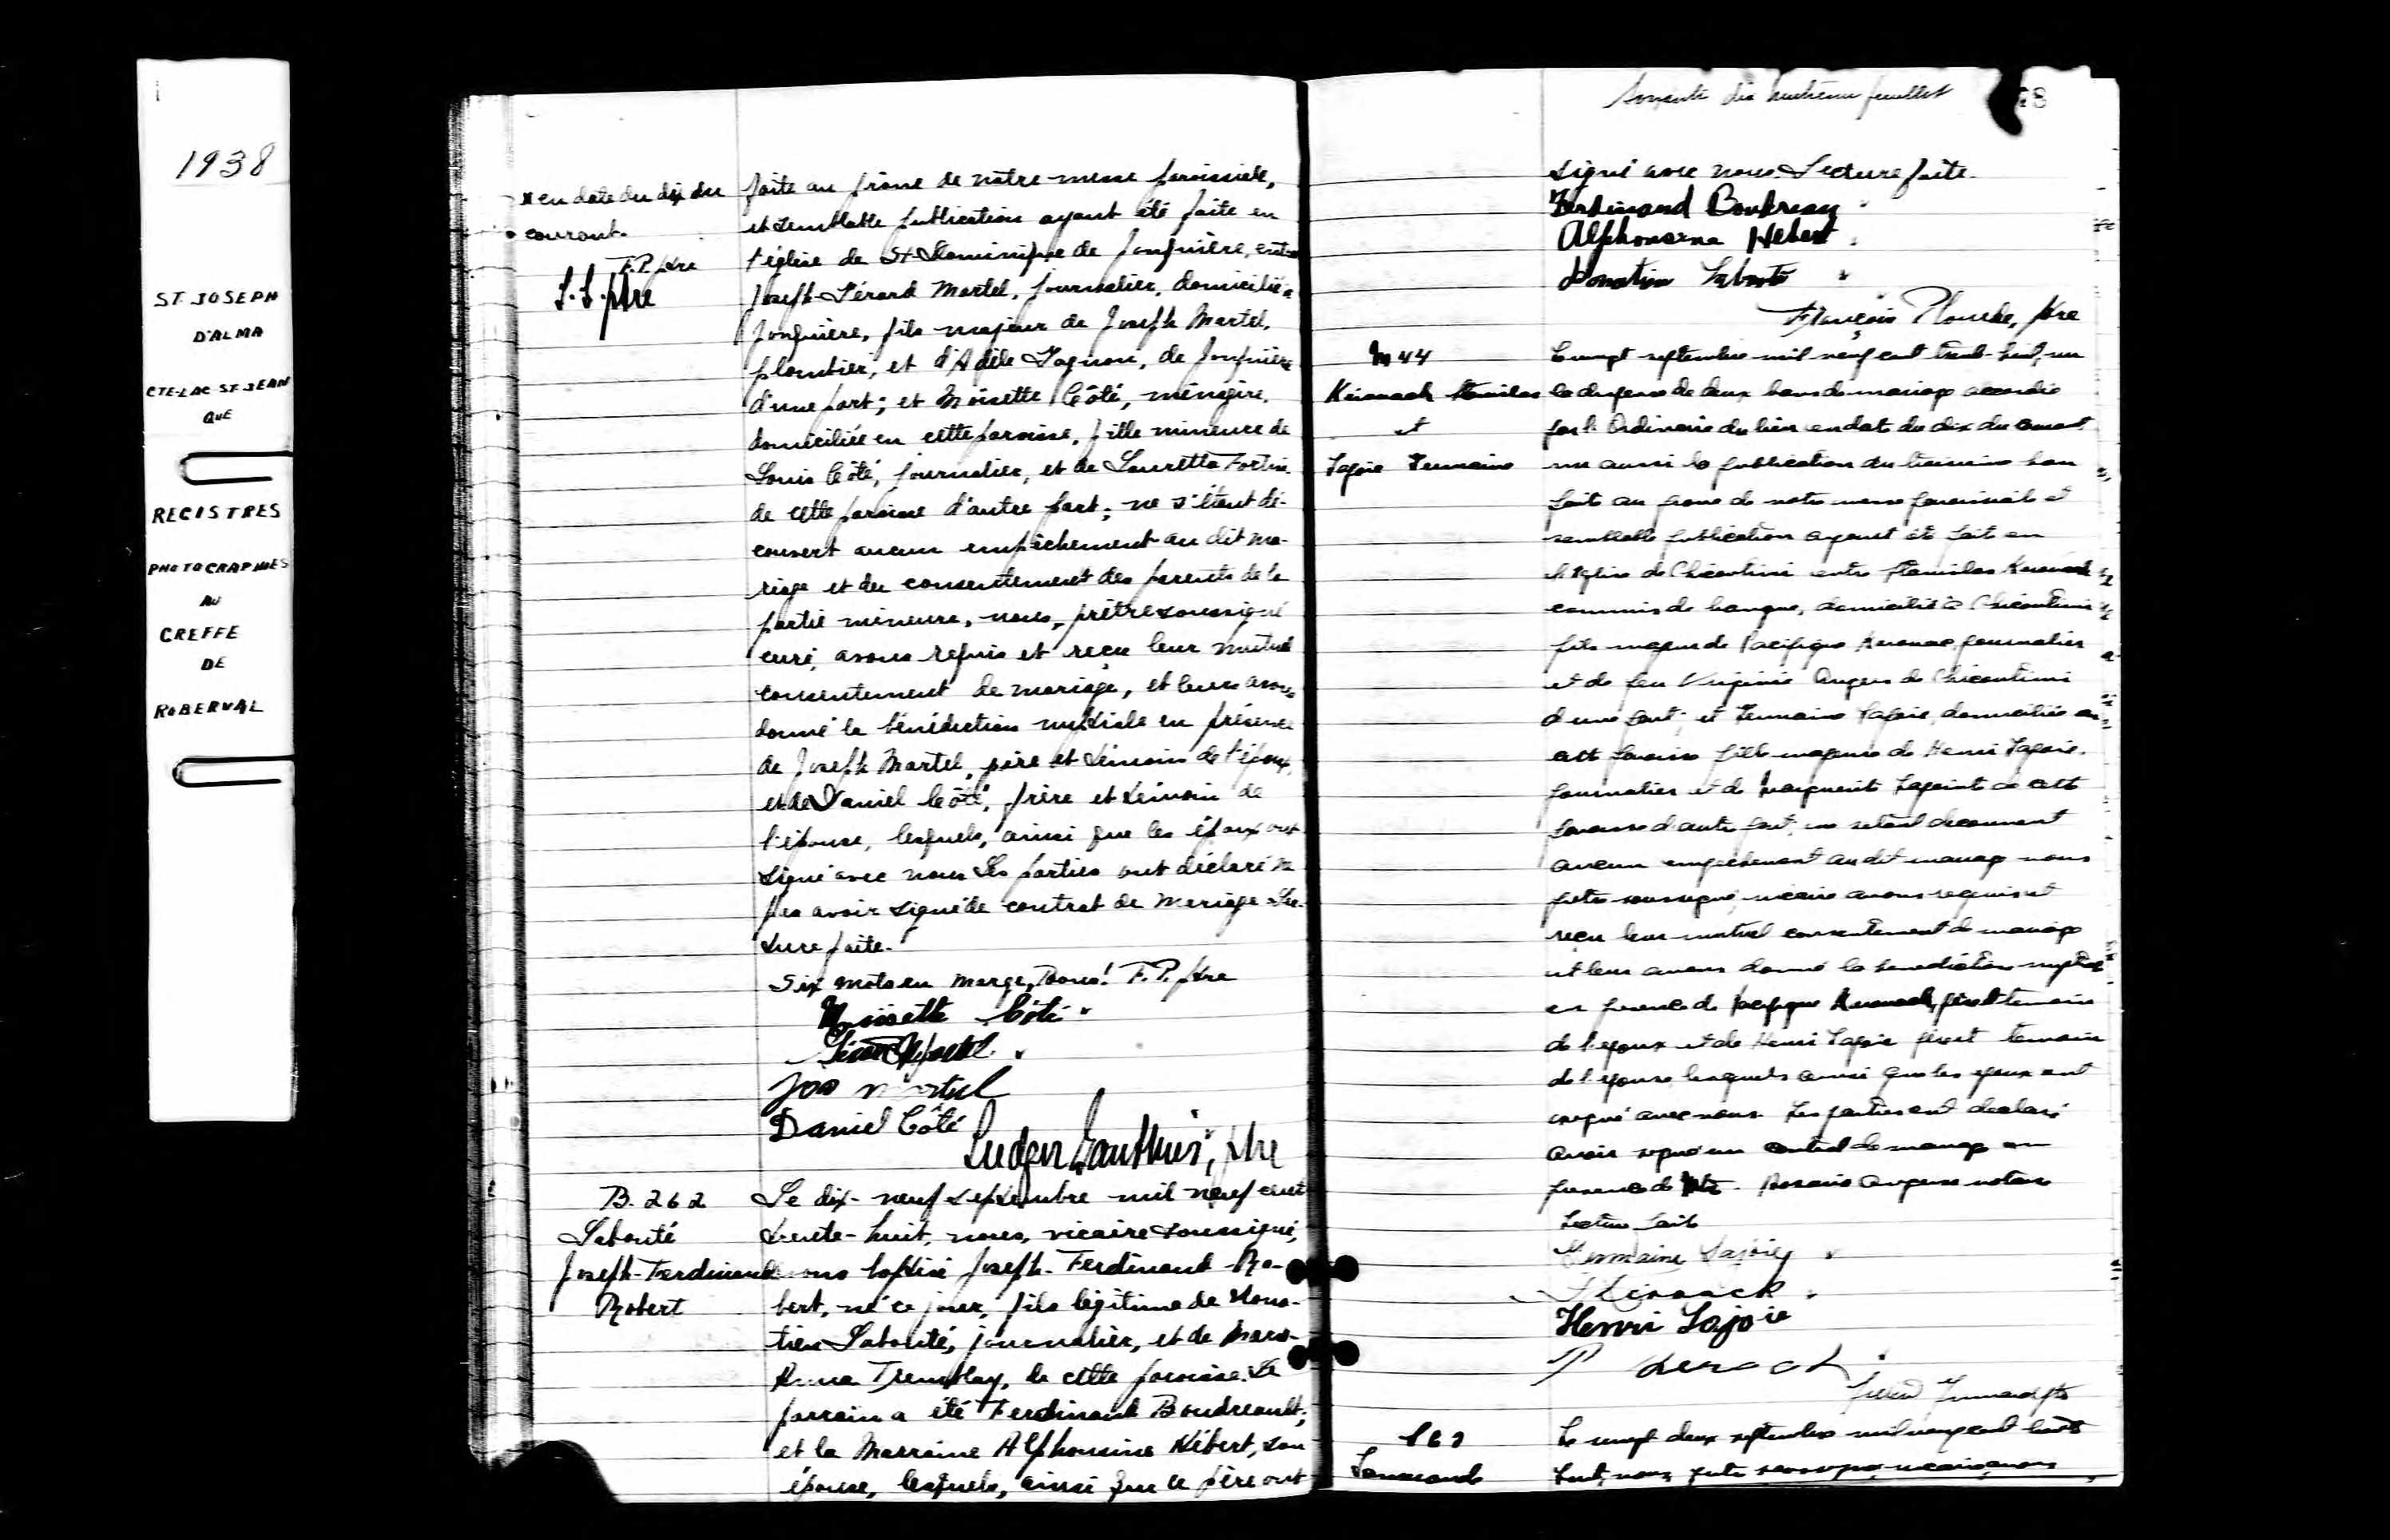 1938
ST. JOSEPH
D'ALMA
CTE-LAC ST-JEAN
QUE
REGISTRES
PHOTOGRAPHIES
AU
GREFFE
DE
ROBERVAL
x en date du dix du
courant.
F.P. ptre
L.G. ptre
faite au prône de notre messe paroissiale,
et semblable publication ayant été faite en
l'église de St Dominique de Jonquière, entre
Joseph-Gérard Martel, journalier, domicilié à
Jonquière, fils majeur de Joseph Martel,
plombier, et d'Adèle Gagnon, de Jonquière
d'une part; et Noisette Côté, ménagère,
domiciliée en cette paroisse, fille mineure de
Louis Côté, journalier, et de Lauretta Fortin
de cette paroisse d'autre part; ne s'étant dé-
couvert aucun empêchement au dit ma-
riage et du consentement des parents de la
partie mineure, nous, prêtre soussigné
curé, avons requis et reçu leur mutuel
consentement de mariage, et leur avons
donné la bénédiction nuptiale en présence
de Joseph Martel, père et témoin de l'époux,
et de Daniel Côté, frère et témoin de
l'épouse, lesquels, ainsi que les époux ont
signé avec nous. Les parties ont déclaré ne
pas avoir signé de contrat de mariage. Lec-
ture faite.
Six mots en marge, bons! F.P. ptre
Noisette Côté
Gérard Martel
Jos Martel
Daniel Côté
Ludger Gauthier, ptre
B. 262
Labonté
Joseph-Ferdinand
Robert
Le dix-neuf septembre mil neuf cent
trente-huit, nous, vicaire soussigné,
avons baptisé Joseph-Ferdinand-Ro-
bert, né ce jour, fils légitime de Dona-
tien Labonté, journalier, et de Marie-
Anna Tremblay, de cette paroisse. Le
parrain a été Ferdinand Boudreault,
et la Marraine Alphonsine Hébert, son
épouse, lesquels, ainsi que le père ont
Soixante dix huitième feuillet
78
signé avec nous. Lecture faite.
Ferdinand Boudreau
Alphonsine Hebert
Donatien Labonté
François Plourde, ptre
M 44
Kirouack Stanilas
et
Lajoie Germaine
Le vingt septembre mil neuf cent trente-huit, vu
la dispense de deux bans de mariage accordée
par l'Ordinaire du lieu en date du dix du courant
vu aussi la publication du troisième ban
faite au prone de notre messe paroissiale et
semblable publication ayant été faite en
l'eglise de Chicoutimi entre Stanislas Kirouack
commis de banque, domicilié à Chicoutimi
fils majeur de Pacifique Kirouac journalier
et de feu Virginie Angers de Chicoutimi
d'une part; et Germaine Lajoie, domiciliée en
cette paroisse fille majeure de Henri Lajoie,
journalier et de Marguerite Lapointe de cette
paroisse d'autre part, ne s'etant decouvert
aucun empêchement au dit mariage nous
prêtre soussigné, vicaire avons requis et
reçu leur mutuel consentement de mariage
et leur avons donné la benediction nuptiale
en presence de Pacifique Kirouack, père et temoin
de l'epoux et de Henri Lajoie père et temoin
de l'epouse lesquels ainsi que les epoux ont
signé avec nous. Les parties ont declaré
avoir signé un contrat de mariage en
presence de Mtre Rosario Angers notaire
Lecture faite
Germaine Lajoie
S Kirouack
Henri Lajoie
P Kirouack
Le vingt deux septembre mil neuf cent trente
huit, nous prêtre soussigné, vicaire, avons